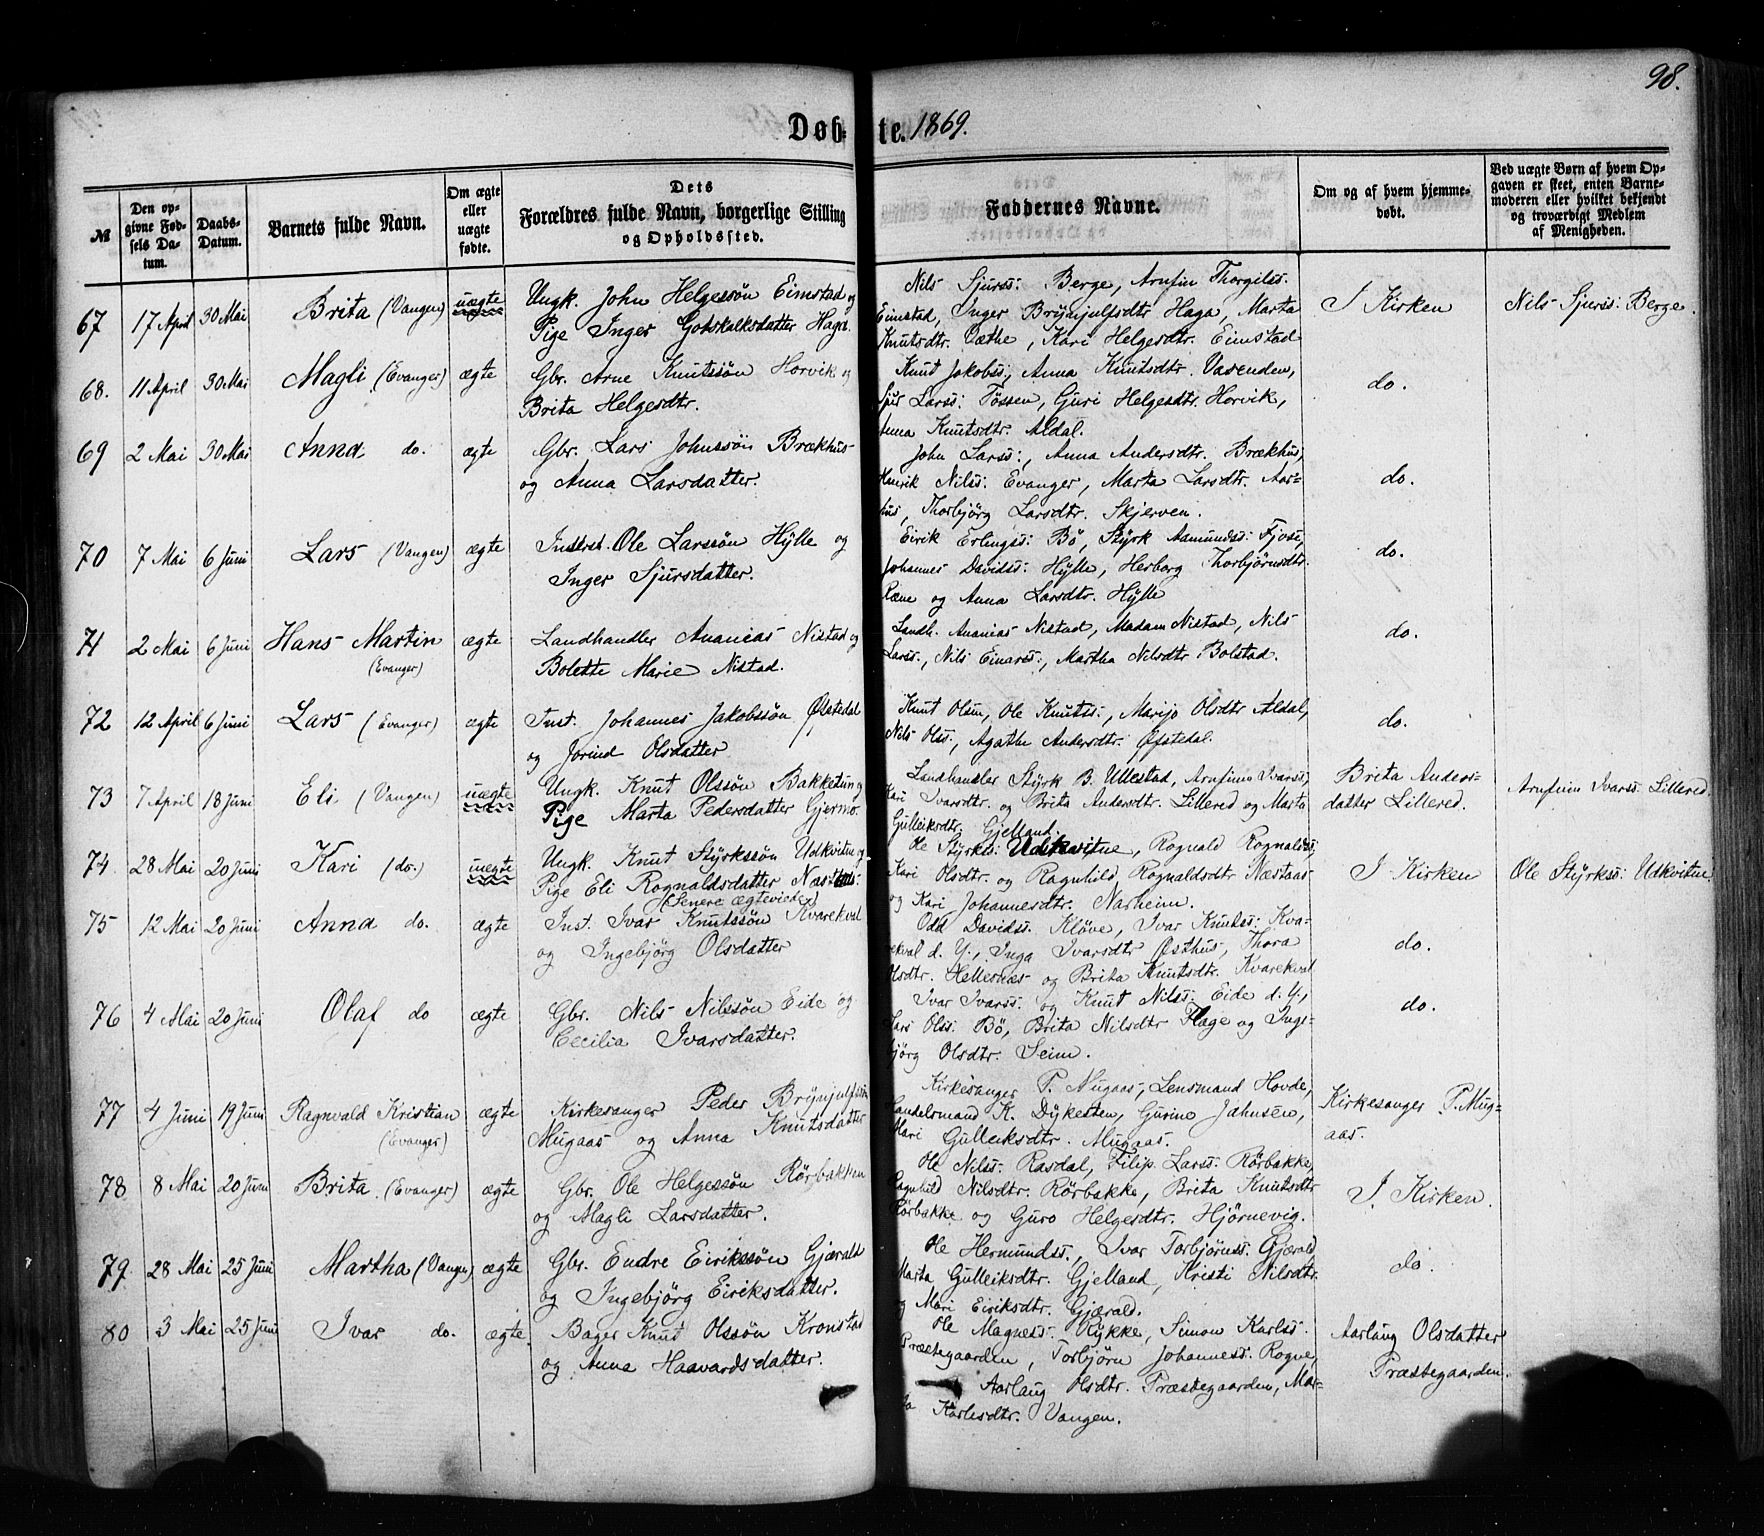 98.
Döbte. 1869.
№
Den opgivne Fødsels Datum.
Daabs-Datum.
Barnets fulde Navn.
Om ægte eller uægte fødte.
Dets Forældres fulde Navn, borgerlige Stilling og Opholdssted.
Faddernes Navne.
Om og af hvem hjemmedøbt.
Ved uægte Børn af hvem Opgaven er skeet, enten Barnemoderen eller hvilket bekjendt og troværdigt Medlem af Menigheden.
67 17 April 30 Mai Brita (Vangen) uægte
Ungk. John Helgessön Eimstad og
Pige Inger Gotskalksdatter Haga.
Nils Sjurss: Berge, Arnfin Thorgilss.
Eimstad, Inger Brynjulfsdtr Haga, Marta
Knutsdtr. Væthe, Kari Helgesdtr. Eimstad
I Kirken
Nils Sjurss: Berge.
68. 11 April 30 Mai Magli (Evanger) ægte
Gbr. Arne Knutssön Horvik og
Brita Helgesdtr.
Knut Jakobss:, Anna Knutsdtr. Vasenden,
Sjur Larss: Tössen, Guri Helgesdtr. Horvik,
Anna Knutsdtr. Aldal.
do.
69 2 Mai 30 Mai Anna do. ægte
Gbr. Lars Johnssön Brækhus
og Anna Larsdatter.
John Larss:, Anna Andersdtr. Brækhus,
Henrik Nilss: Evanger, Marta Larsdtr. Aar-
hus, Thorbjörg Larsdtr. Skjerven.
do.
70 7 Mai 6 Juni Lars (Vangen) ægte
Inderst. Ole Larssön Hylle og
Inger Sjursdatter.
Eirik Erlingss: Bö, Styrk Aamundss: Fjose,
Johannes Davidss: Hylle, Herborg Thorbjörnsdtr.
Ræne og Anna Larsdtr. Hylle
do.
71 2 Mai 6 Juni Hans Martin (Evanger) ægte
Landhandler Ananias Nistad og
Bolette Marie Nistad.
Landh. Ananias Nistad, Madam Nistad, Nils
Larss., Nils Einarss:, Martha Nilsdtr Bolstad.
do.
72 12 April 6 Juni Lars (Evanger) ægte
Inst. Johannes Jakobssön Östedal
og Jorind Olsdatter
Knut Olsen, Ole Knutss:, Marijo Olsdtr Aldal,
Nils Olss:, Agathe Andersdtr. Östedal.
do.
73 7 April 18 Juni Eli (Vangen) uægte
Ungk. Knut Olssön Bakketun og
Pige Marta Pedersdatter Gjerno.
Landhandler Styrk B. Ullestad, Arnfinn Ivarss,
Kari Ivarsdtr. og Brita Andersdtr. Lillered og Marta
Gulleiksdtr. Gjelland.
Brita Anders-
datter Lillered.
Arnfinn Ivarss: Lillered.
74. 28 Mai 20 Juni Kari (do.) uægte
Ungk. Knut Styrkssön Udkvitne og
Pige Eli Rognaldsdatter
(Senere ægteviede)
Ole Styrkss: Udkvitne, Rognald Rognaldss,
Kari Olsdtr. og Ragnhild Rognaldsdtr Næstaas
og Kari Johannesdtr. Narheim.
I Kirken
Ole Styrkss: Udkvitne
75 12 Mai 20 Juni Anna do. ægte
Inst. Ivar Knutssön Kvarekval
og Ingebjörg Olsdatter
Odd Davidss. Klöve, Ivar Knutss: Kva-
rekval d. Y., Inga Ivarsdtr Östhus, Thora
Olsdtr. Hellernæs og Brita Knutsdtr. Kvarekval
do.
76 4 Mai 20 Juni Olaf do ægte
Gbr. Nils Nilssön Eide og
Cecilia Ivarsdatter.
Ivar Ivarss. og Knut Nilss: Eide d. Y.,
Lars Olss: Bö, Brita Nilsdtr Flage og Inge-
björg Olsdtr. Seim.
do.
77 4 Juni 19 Juni Ragnvald Kristian (Evanger) ægte
Kirkesanger Peder Brynjulfssön
Mugaas og Anna Knutsdatter
Kirkesanger P. Mugaas, Lensmand Hovde,
Handelsmand K. Dykesten, Gurine Jahnsen,
Mari Gulleiksdtr. Mugaas.
Kirkesanger P. Mug-
aas.
78 8 Mai 20 Juni Brita (Evanger) ægte
Gbr. Ole Helgessön Rörbakken
og Magli Larsdatter.
Ole Nilss: Rasdal, Filip Larss: Rörbakke,
Ragnhild Nilsdtr. Rörbakke, Brita Knutsdtr
Rörbakke og Guro Helgesdtr. Hjörnevig.
I Kirken.
79. 28 Mai 25 Juni Martha (Vangen) ægte
Gbr. Endre Eirikssön Gjærald
og Ingebjörg Eiriksdatter.
Ole Hermundss., Ivar Torbjörnss. Gjærald
Marta Gulleiksdtr. Gjelland, Kristi Nilsdtr.
og Mari Eiriksdtr. Gjærald.
do.
80 3 Mai 25 Juni Ivar do. ægte
Bager Knut Olssön Kronstad
og Anna Haavardsdatter.
Ole Magness: Rykke, Simon Karlss.
Præstegaarden, Torbjörn Johanness: Rogne,
Aarlaug Olsdtr. Præstegaarden, Mar-
ta Karlesdtr. Vangen.
Aarlaug Olsdatter
Præstegaarden.